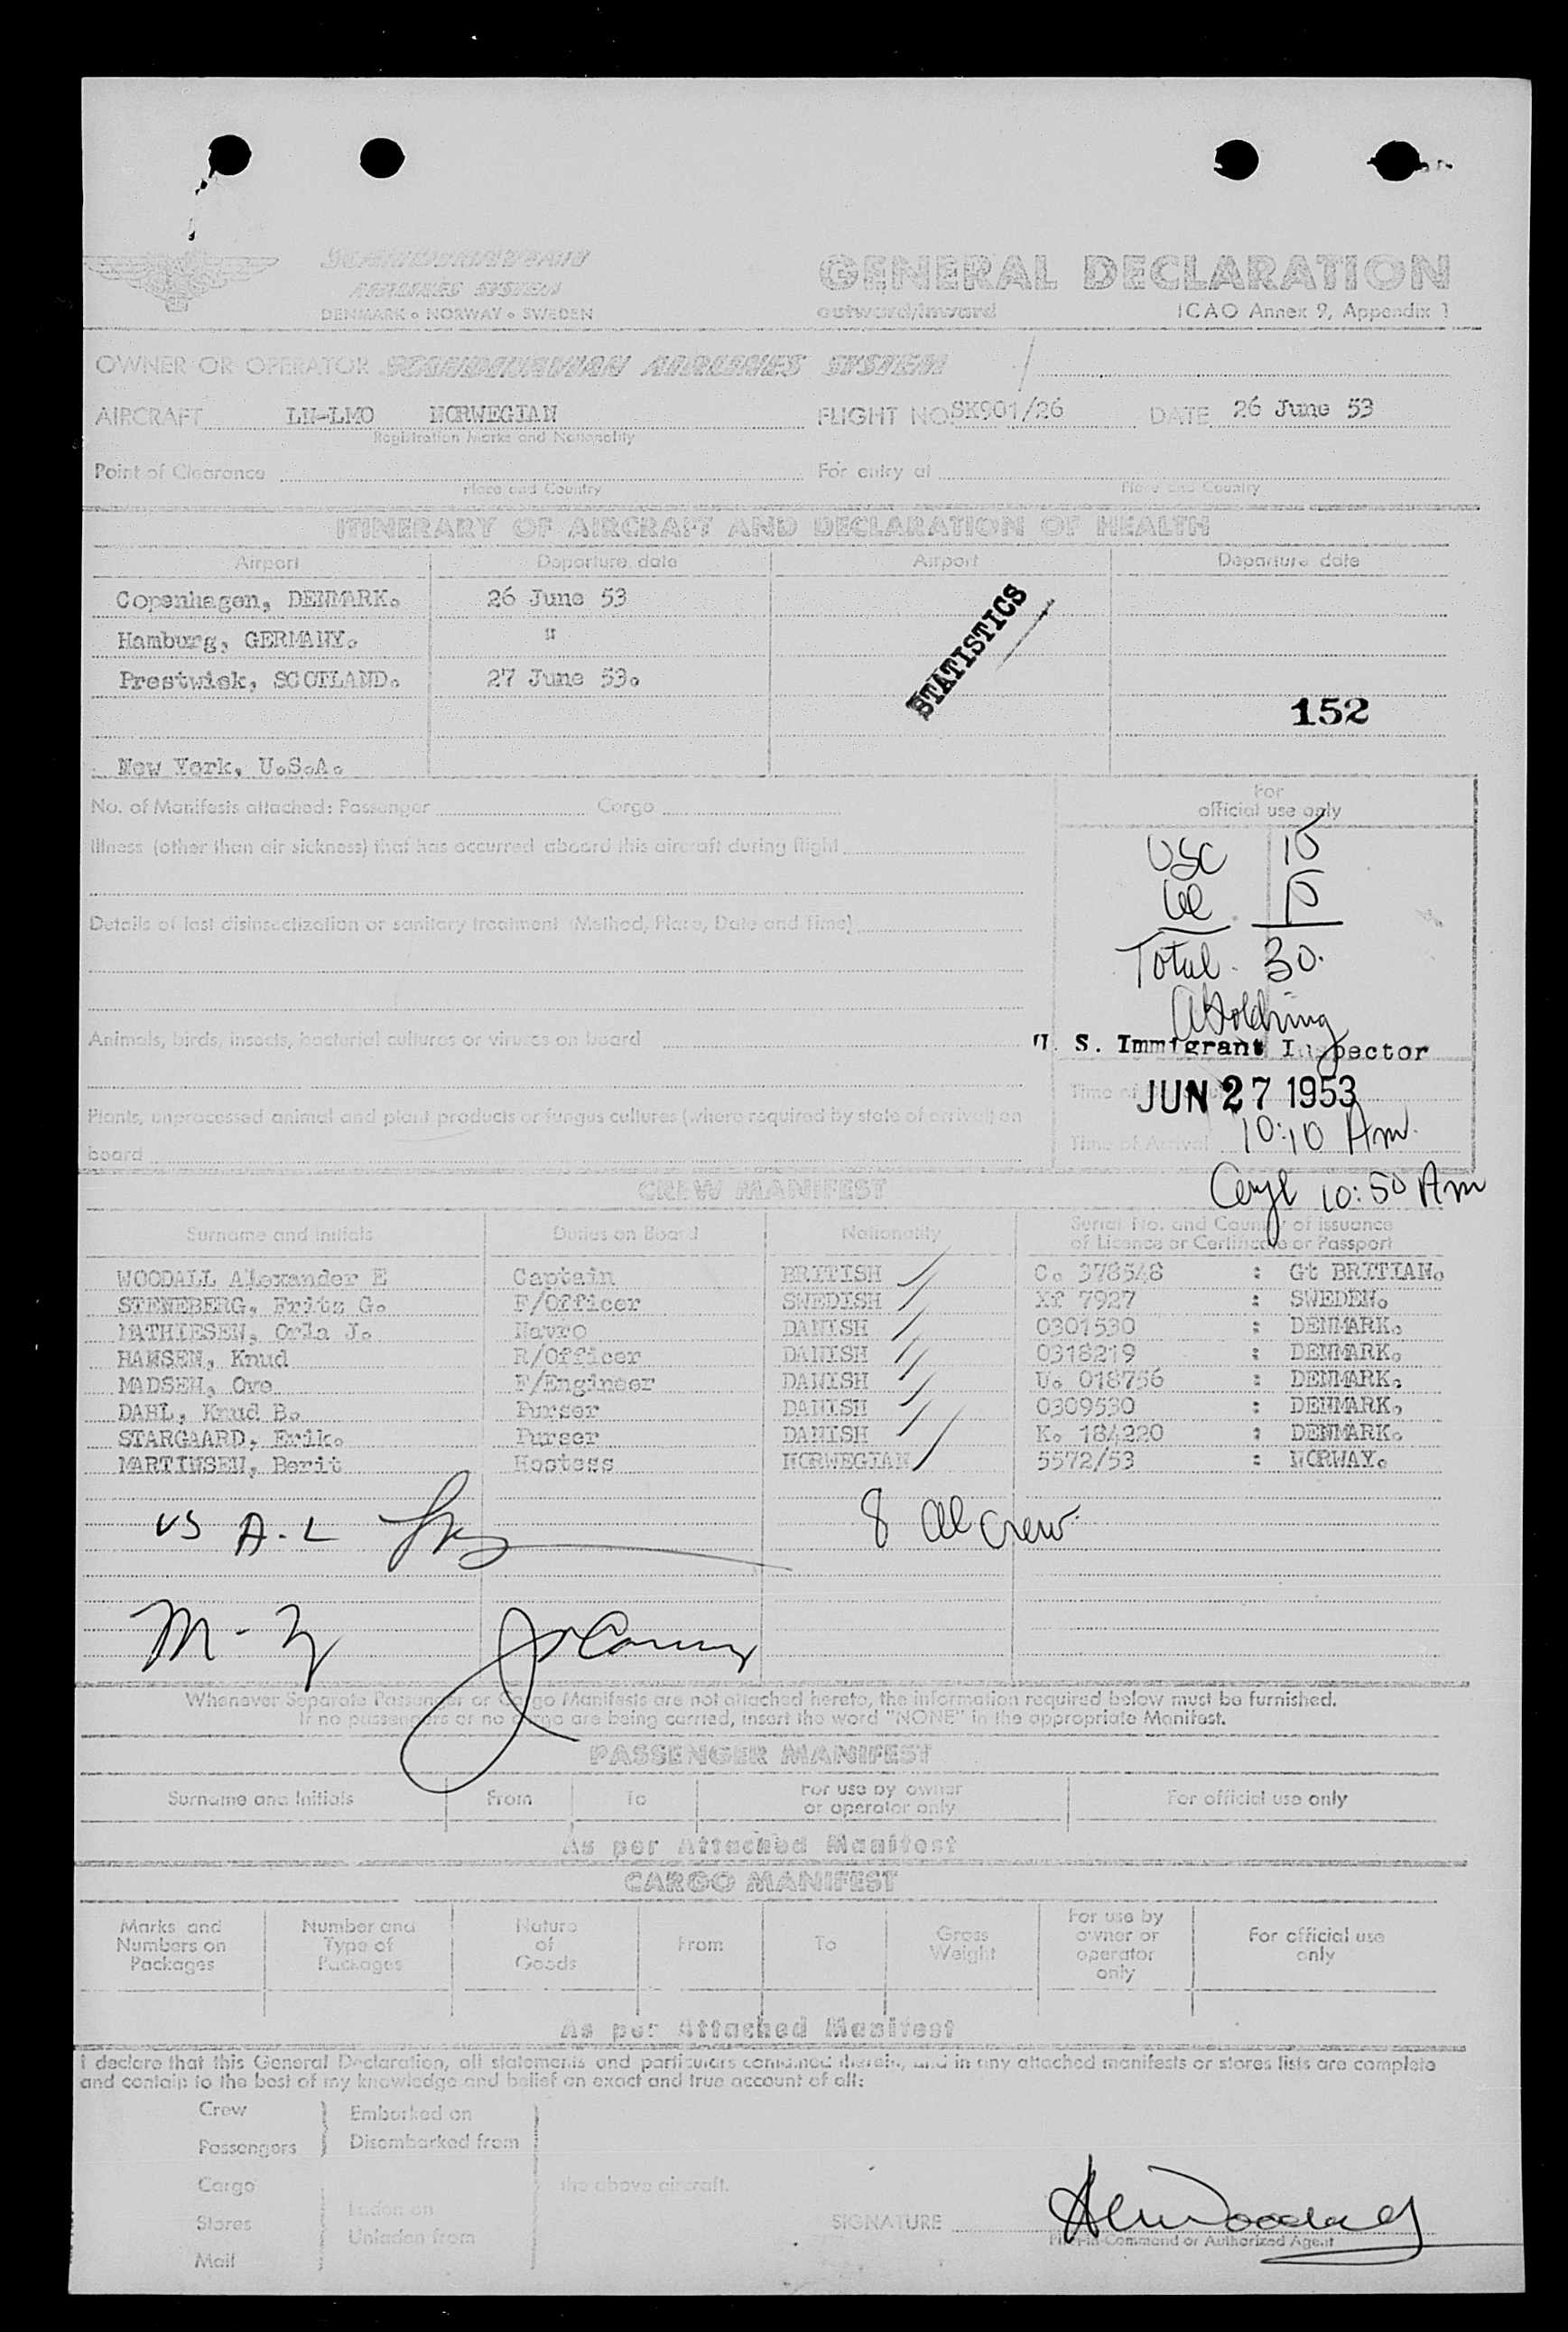 SCANDINAVIAN
AIRLINES SYSTEM
DENMARK • NORWAY • SWEDEN
GENERAL DECLARATION
outward/inward
ICAO Annex 9, Appendix 1
OWNER OR OPERATOR SCANDINAVIAN AIRLINES SYSTEM
AIRCRAFT LN-LMO NORWEGIAN FLIGHT NO. SK901/26 DATE 26 June 53
Registration Marks and Nationality
Point of Clearance For entry at
Place and Country Place and Country
ITINERARY OF AIRCRAFT AND DECLARATION OF HEALTH
Airport Departure date Airport Departure date
Copenhagen, DENMARK. 26 June 53
Hamburg, GERMANY. "
Prestwick, SCOTLAND. 27 June 53.
STATISTICS
152
New York, U.S.A.
No. of Manifests attached: Passenger Cargo
For
official use only
Illness (other than air sickness) that has occurred aboard this aircraft during flight
USC 15
15
Total 30.
Details of last disinsectization or sanitary treatment (Method, Place, Date and Time)
Animals, birds, insects, bacterial cultures or viruses on board
U. S. Immigrant Inspector
JUN 27 1953
Plants, unprocessed animal and plant products or fungus cultures (where required by state of arrival) on
board
Time of Arrival 10:10 Am.
10:50 Am
CREW MANIFEST
Surname and initials Duties on Board Nationality Serial No. and Country of issuance
of Licence or Certificate or Passport
WOODALL Alexander E Captain BRITISH C. 378548 : Gt BRITIAN.
STENEBERG, Frits G. F/Officer SWEDISH Xf 7927 : SWEDEN.
MATHIESEN, Orla J. Navro DANISH 0301530 : DENMARK.
HANSEN, Knud R/Officer DANISH 0318219 : DENMARK.
MADSEN, Ove F/Engineer DANISH U. 018756 : DENMARK.
DAHL, Knud B. Purser DANISH 0309530 : DENMARK.
STARGAARD, Erik. Purser DANISH K. 184220 : DENMARK.
MARTINSEN, Berit Hostess NORWEGIAN 5572/53 : NORWAY.
US A-L
8 al crew
M-Z
Whenever Separate Passenger or Cargo Manifests are not attached hereto, the information required below must be furnished.
If no passengers or no cargo are being carried, insert the word "NONE" in the appropriate Manifest.
PASSENGER MANIFEST
Surname and Initials From To For use by owner
or operator only For official use only
As per Attached Manifest
CARGO MANIFEST
Marks and
Numbers on
Packages
Number and
Type of
Packages
Nature
of
Goods
From
To
Gross
Weight
For use by
owner or
operator
only
For official use
only
As per Attached Manifest
I declare that this General Declaration, all statements and particulars contained therein, and in any attached manifests or stores lists are complete
and contain to the best of my knowledge and belief an exact and true account of all:
Crew Embarked on
Passengers Disembarked from
Cargo the above aircraft.
Stores Laden on
Unladen from
Mail
SIGNATURE AEWoodall
Pilot-in-Command or Authorized Agent